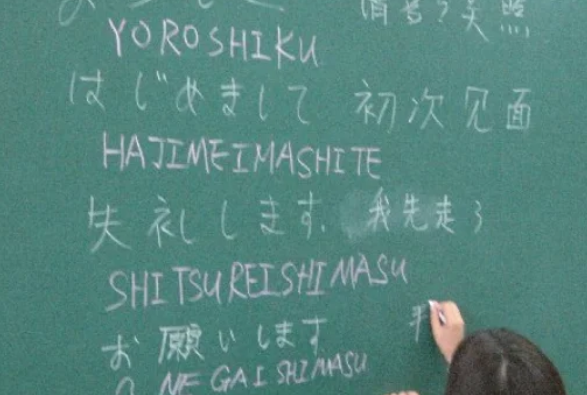 よろしく 請多多关照
YOROSHIKU
はじめまして 初次见面
HAJIMEIMASHITE
失礼します. 我先走了
SHITSUREISHIMASU
お願いします
O NEGAISHIMASU